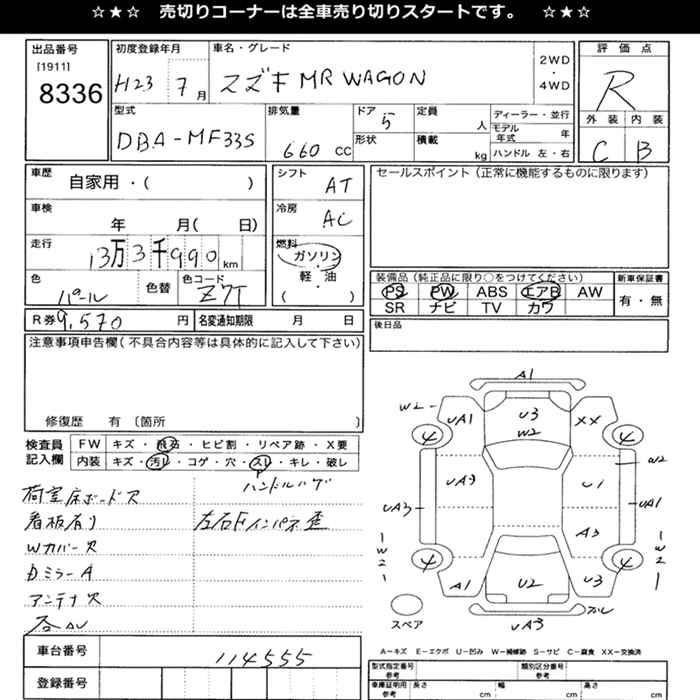 ☆★☆ 売切りコーナーは全車売り切りスタートです。 ☆★☆
出品番号 初度登録年月 車名・グレード 2WD ・ 4WD 評価点
[1911] 8336 H23 7月 スズキ MR WAGON R
型式 排気量 ドア 定員 ディーラー・並行 外装 内装
DBA-MF33S 660 CC 5 人 モデル年式 年 C B
形状 積載 kg ハンドル 左・右
車歴 自家用・( ) シフト AT セールスポイント(正常に機能するものに限ります)
車検 年 月( 日) 冷房 AC
走行 13万3千990km 燃料 ガソリン・軽・油 ( )
色 パール 色替 色コード Z7T
装備品(純正品に限り○をつけてください) 新車保証書
PS PW ABS エアB AW 有・無
SR ナビ TV カワ
R券 9,570 円 名変通知期限 月 日 後日品
注意事項申告欄(不具合内容等は具体的に記入して下さい)
修復歴 有〔箇所 〕
検査員記入欄 FW キズ・飛石・ヒビ割・リペア跡・X要
内装 キズ・汚れ・コゲ・穴・スレ・キレ・破レ
ハンドルハゲ
荷室床ボード欠
看板有り 左右Fインパネ歪
Wカバー欠
Dミラー A
アンテナ欠
A1
W2 UA1 U3 XX
4 W2 4
UA3 W2
UA3 U1 UA1
A3
W2 4 4 W2
A1 U2 U3
スレ
スペア UA3
A-キズ E-エクボ U-凹み W-補修跡 S-サビ C-腐食 XX-交換済
車台番号 114555
型式指定番号 参考 類別区分番号 参考
登録番号
車庫証明用 参考 長さ cm 幅 cm 高さ cm